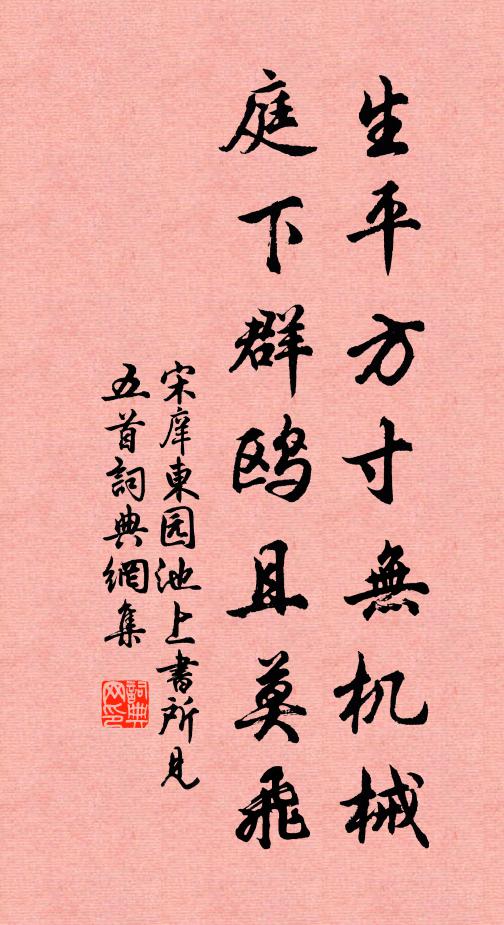 生平方寸無机械
庭下群鸥且莫飛
宋庠東园池上書所見
五首詞典網集
詞典
网印